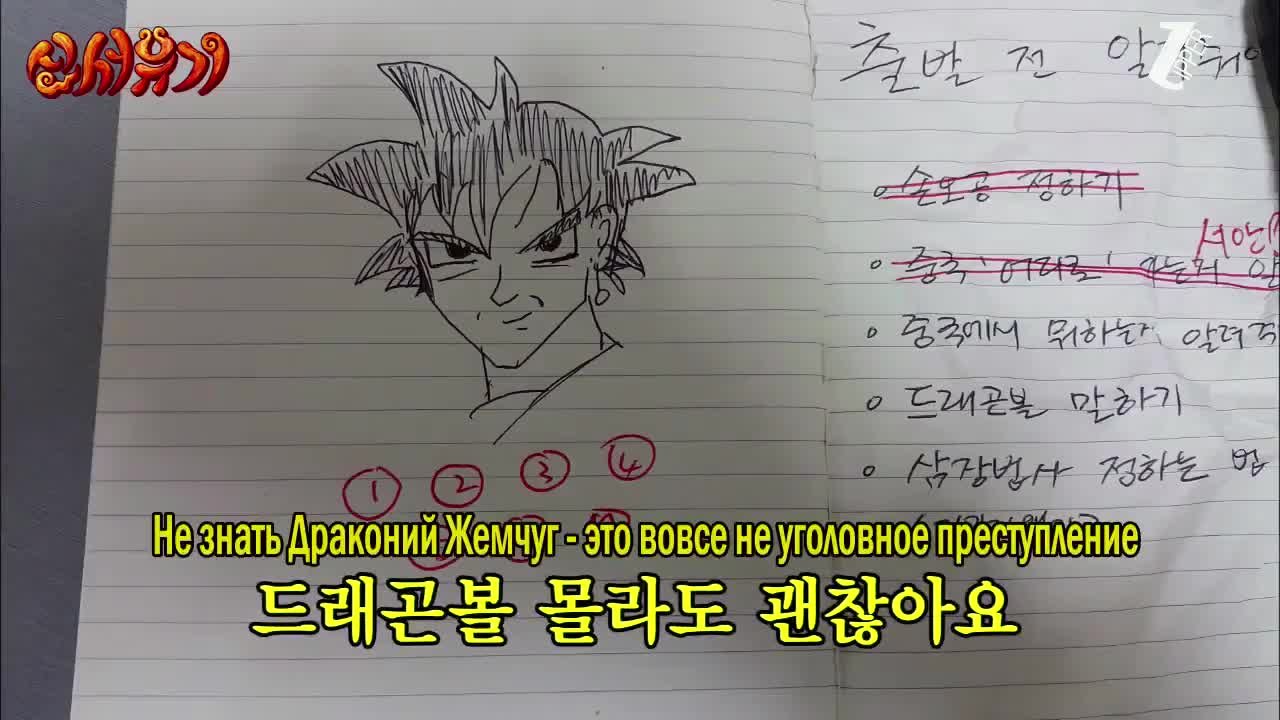 신서유기
출발 전 알
손오공 정하기
서안
중국 '어디로' 가는지 알
중국에서 뭐하는지 알려주
드래곤볼 말하기
삼장법사 정하는 법
① ② ③ ④
Не знать Драконий Жемчуг - это вовсе не уголовное преступление
드래곤볼 몰라도 괜찮아요